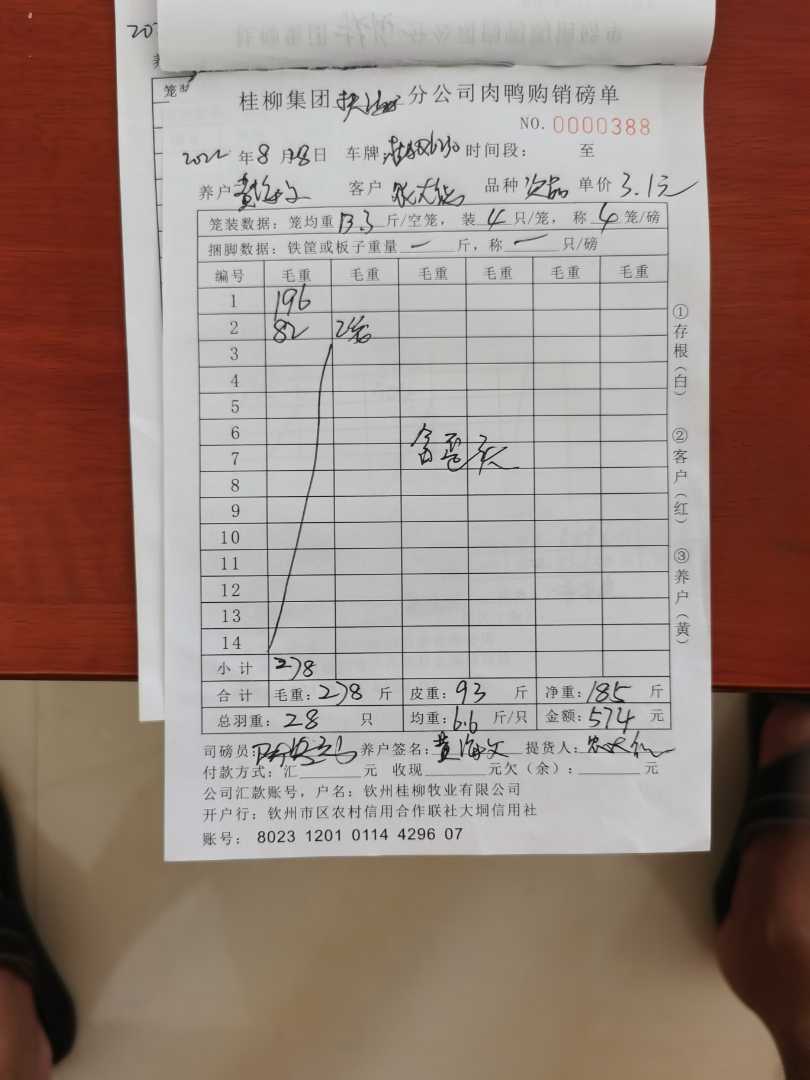 桂柳集团 分公司肉鸭购销磅单
NO. 0000388
2022 年 8 月 18 日 车牌 时间段: 至
养户 黄海文 客户 农大 品种 次品 单价 3.1元
笼装数据: 笼均重 13.3 斤/空笼, 装 4 只/笼, 称 4 笼/磅
捆脚数据: 铁筐或板子重量 一 斤, 称 一 只/磅
编号 毛重 毛重 毛重 毛重 毛重 毛重
1 196
2 82
3
4
5
6
7
8
9
10
11
12
13
14
小计 278
合计 毛重: 278 斤 皮重: 93 斤 净重: 185 斤
总羽重: 28 只 均重: 6.6 斤/只 金额: 574 元
司磅员: 养户签名: 黄海文 提货人: 农大
付款方式: 汇 元 收现 元欠(余): 元
公司汇款账号, 户名: 钦州桂柳牧业有限公司
开户行: 钦州市区农村信用合作联社大垌信用社
账号: 8023 1201 0114 4296 07
①存根(白) ②客户(红) ③养户(黄)